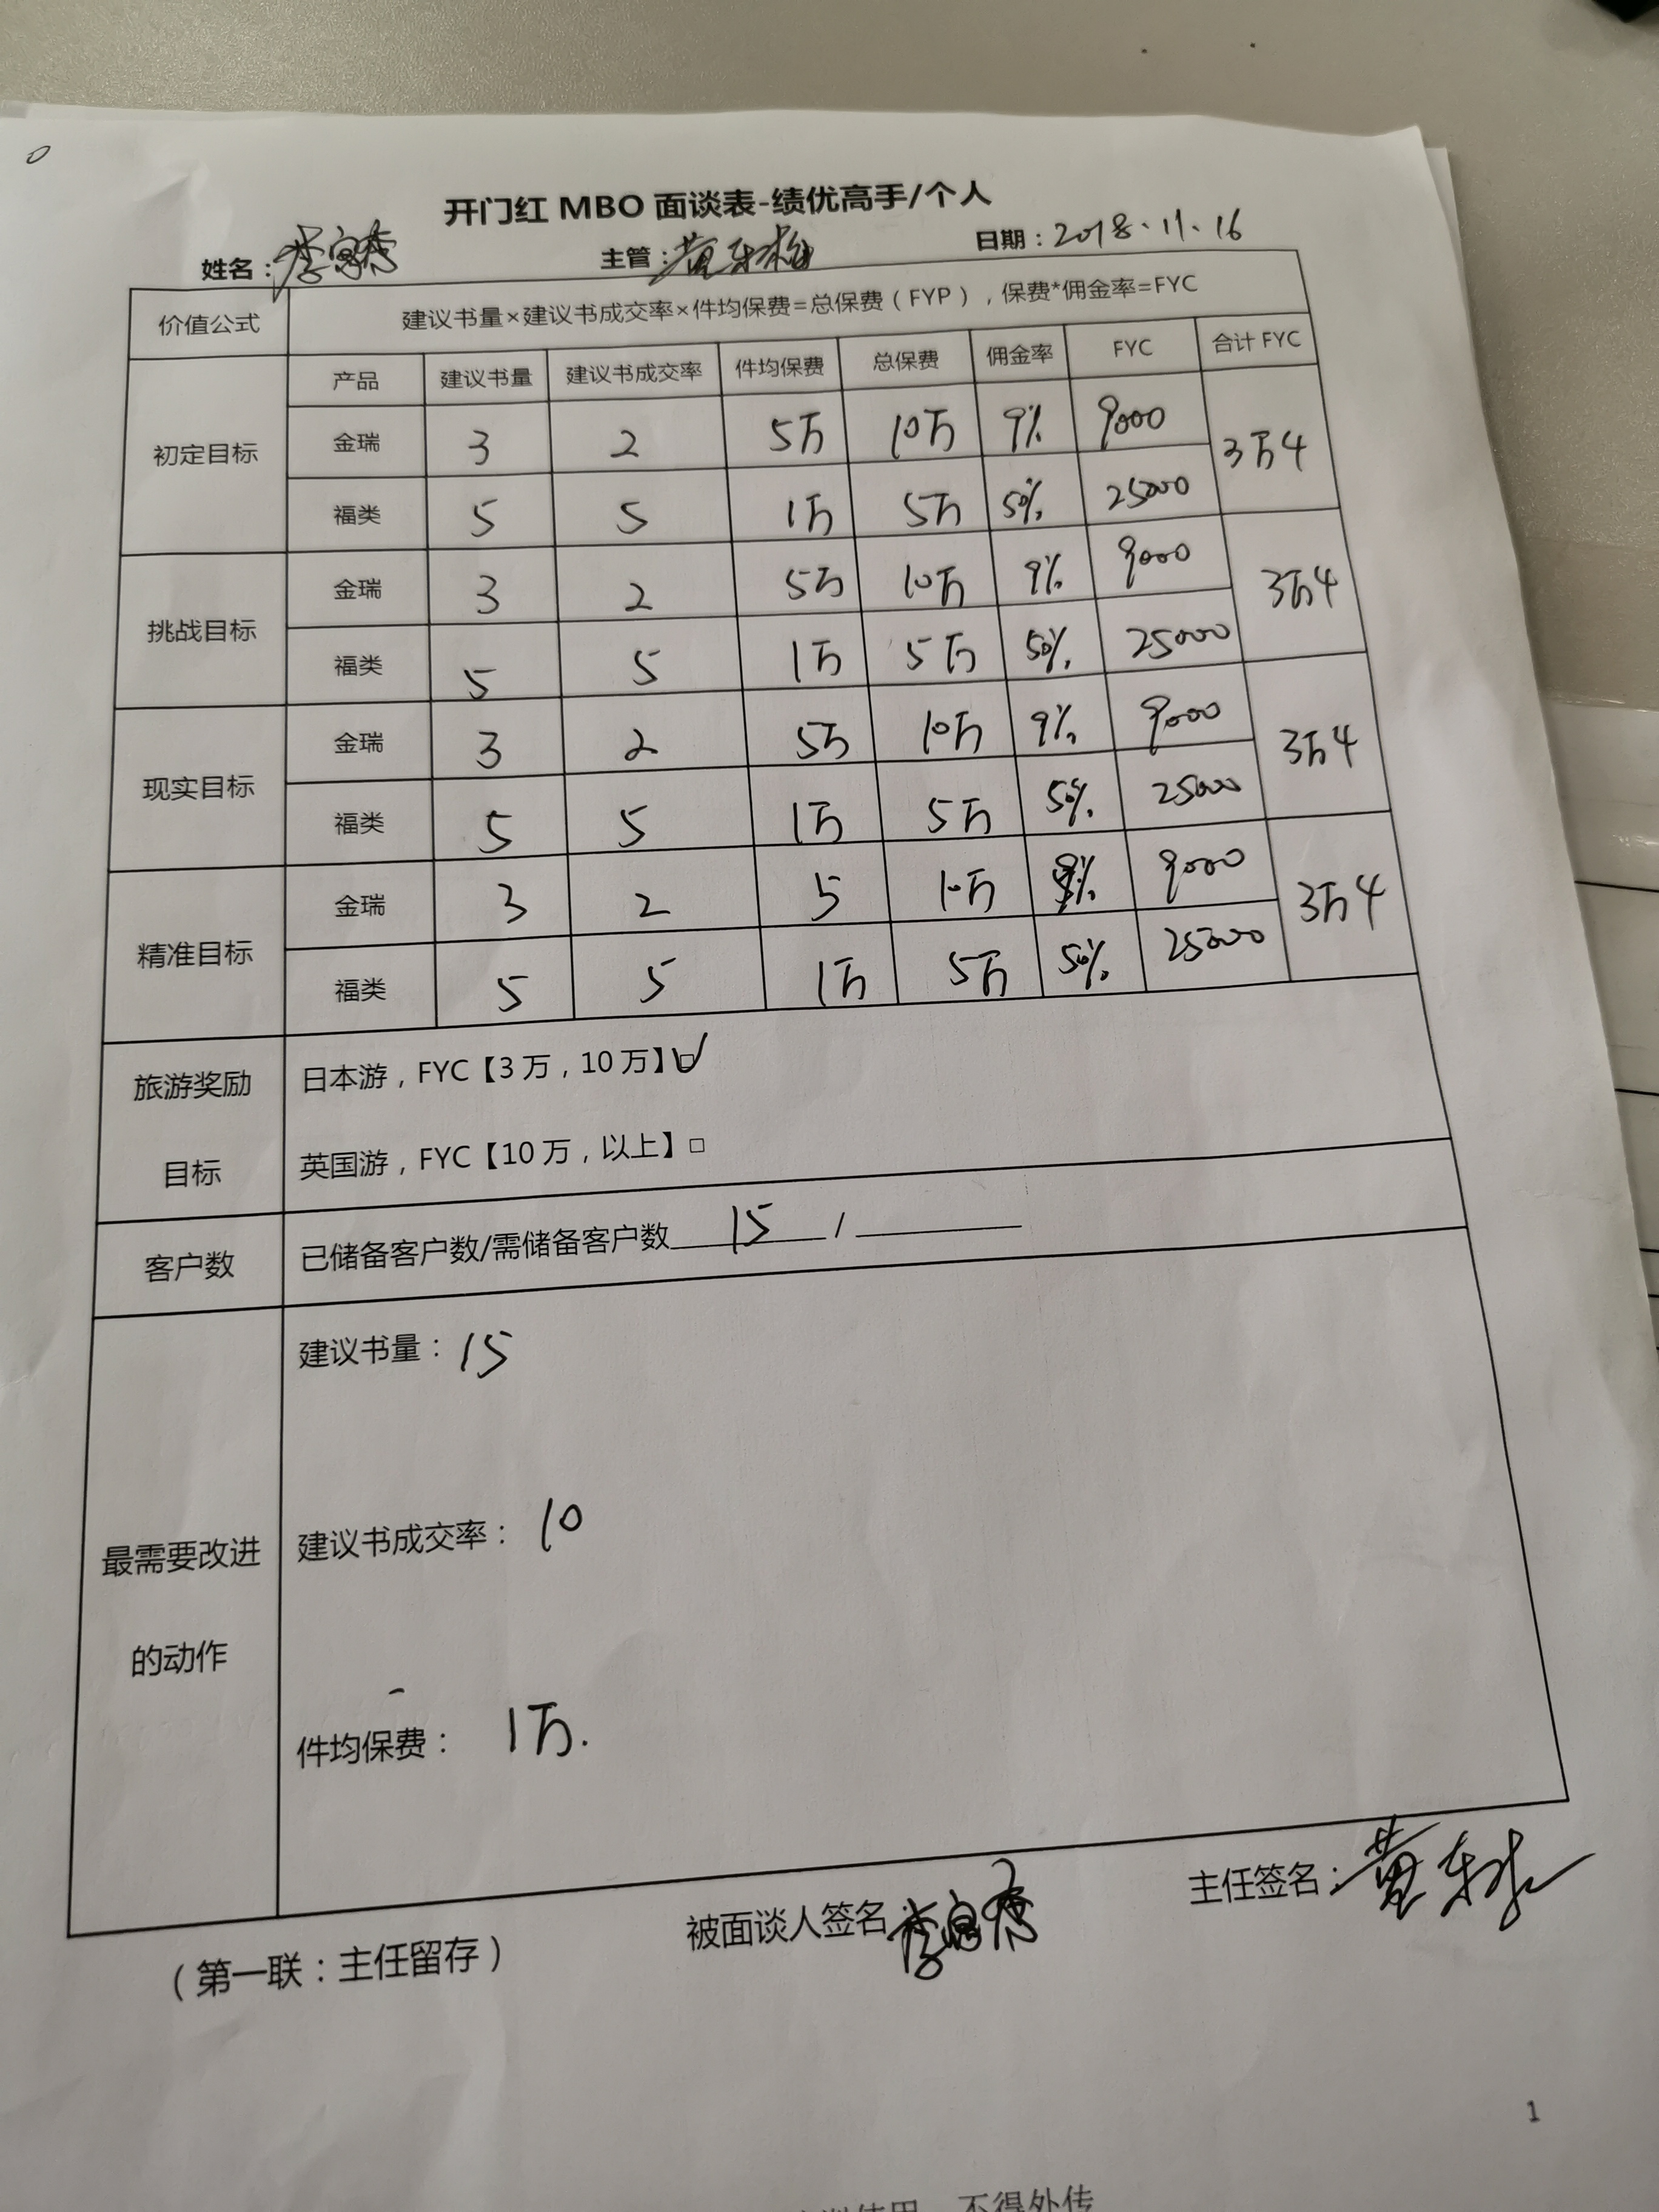 开门红 MBO 面谈表-绩优高手/个人
姓名: 主管: 黄 日期: 2018.11.16
价值公式 建议书量×建议书成交率×件均保费=总保费(FYP),保费*佣金率=FYC
产品 建议书量 建议书成交率 件均保费 总保费 佣金率 FYC 合计 FYC
初定目标 金瑞 3 2 5万 10万 9% 9000 3万4
福类 5 5 1万 5万 50% 25000
挑战目标 金瑞 3 2 5万 10万 9% 9000 3万4
福类 5 5 1万 5万 50% 25000
现实目标 金瑞 3 2 5万 10万 9% 9000 3万4
福类 5 5 1万 5万 50% 25000
精准目标 金瑞 3 2 5 10万 9% 9000 3万4
福类 5 5 1万 5万 50% 25000
旅游奖励 日本游,FYC【3万,10万】☑
目标 英国游,FYC【10万,以上】□
客户数 已储备客户数/需储备客户数 15 /
建议书量: 15
建议书成交率: 10
最需要改进
的动作
件均保费: 1万.
(第一联:主任留存) 被面谈人签名: 主任签名: 黄
1
使用 不得外传